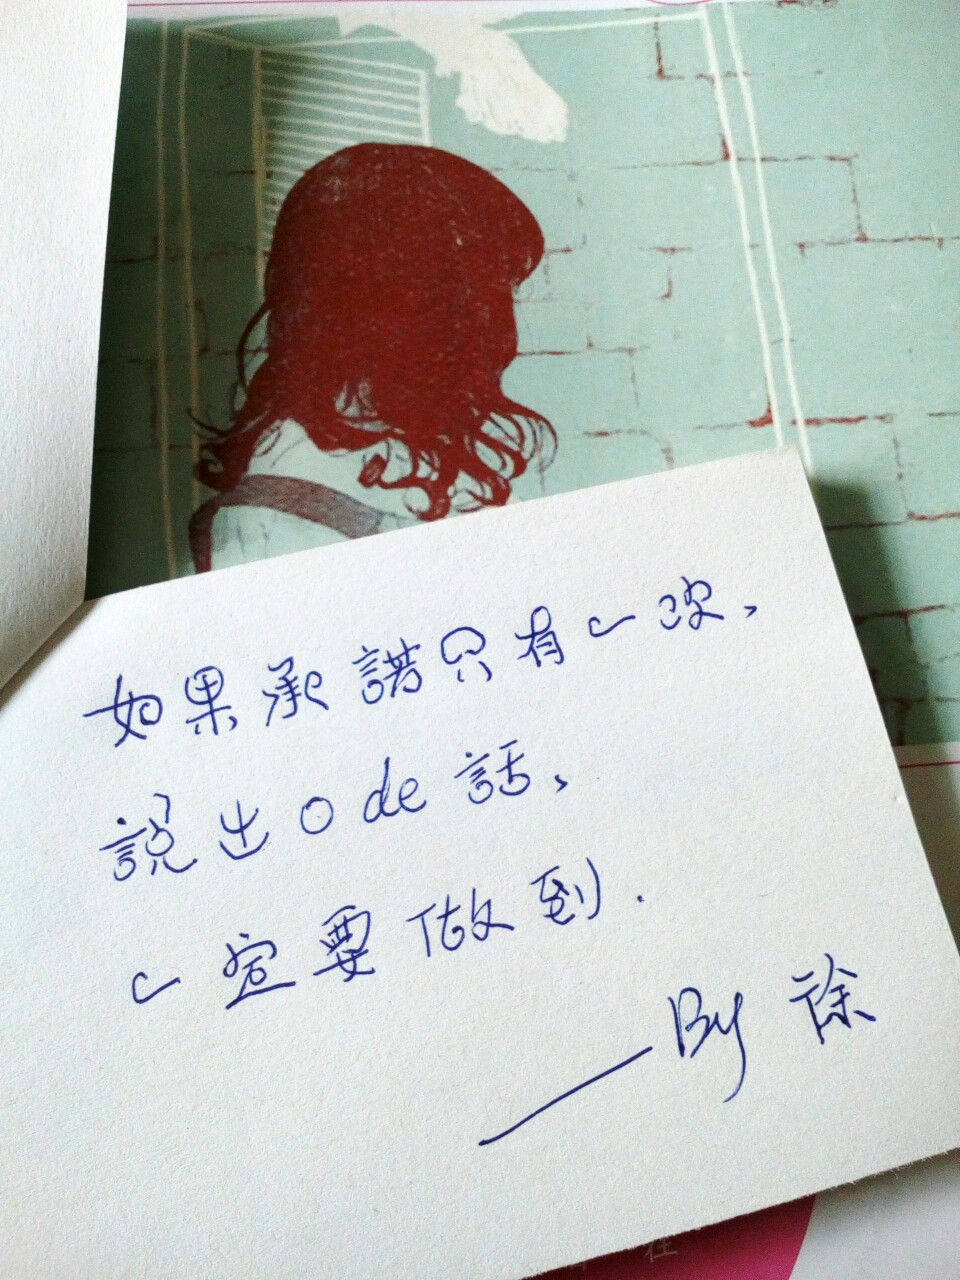 如果承諾只有一次、
說出 o de 話、
一定要做到.
——By 徐
在